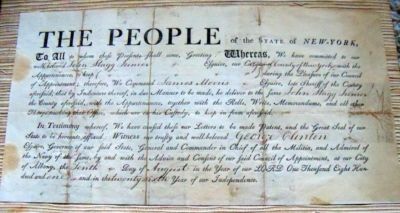 THE PEOPLE of the State of NEW-YORK,
To All to whom these Presents shall come, Greeting Whereas, We have committed to our
John Stagg Junior Esquire, our City and County of New York, with the
Appurtenances, to keep during the Pleasure of our Council
of Appointment; therefore, We Command James Morris Esquire late Sheriff of the County
aforesaid, that by Indenture thereof, in due Manner to be made, he deliver to the same John Stagg Junior
the County aforesaid, with the Appurtenances, together with the Rolls, Writs, Memorandums, and all other
that Office, which are in his Custody, to keep in form aforesaid.
In Testimony whereof, We have caused these our Letters to be made Patent, and the Great Seal of our
State to be hereunto affixed. Witness our trusty and well-beloved George Clinton
Esquire, Governor of our said State, General and Commander in Chief of all the Militia, and Admiral of
the Navy of the same, by and with the Advice and Consent of our said Council of Appointment, at our City
of Albany, the tenth Day of August in the Year of our LORD One Thousand Eight Hundred
and one and in the twenty sixth Year of our Independence.